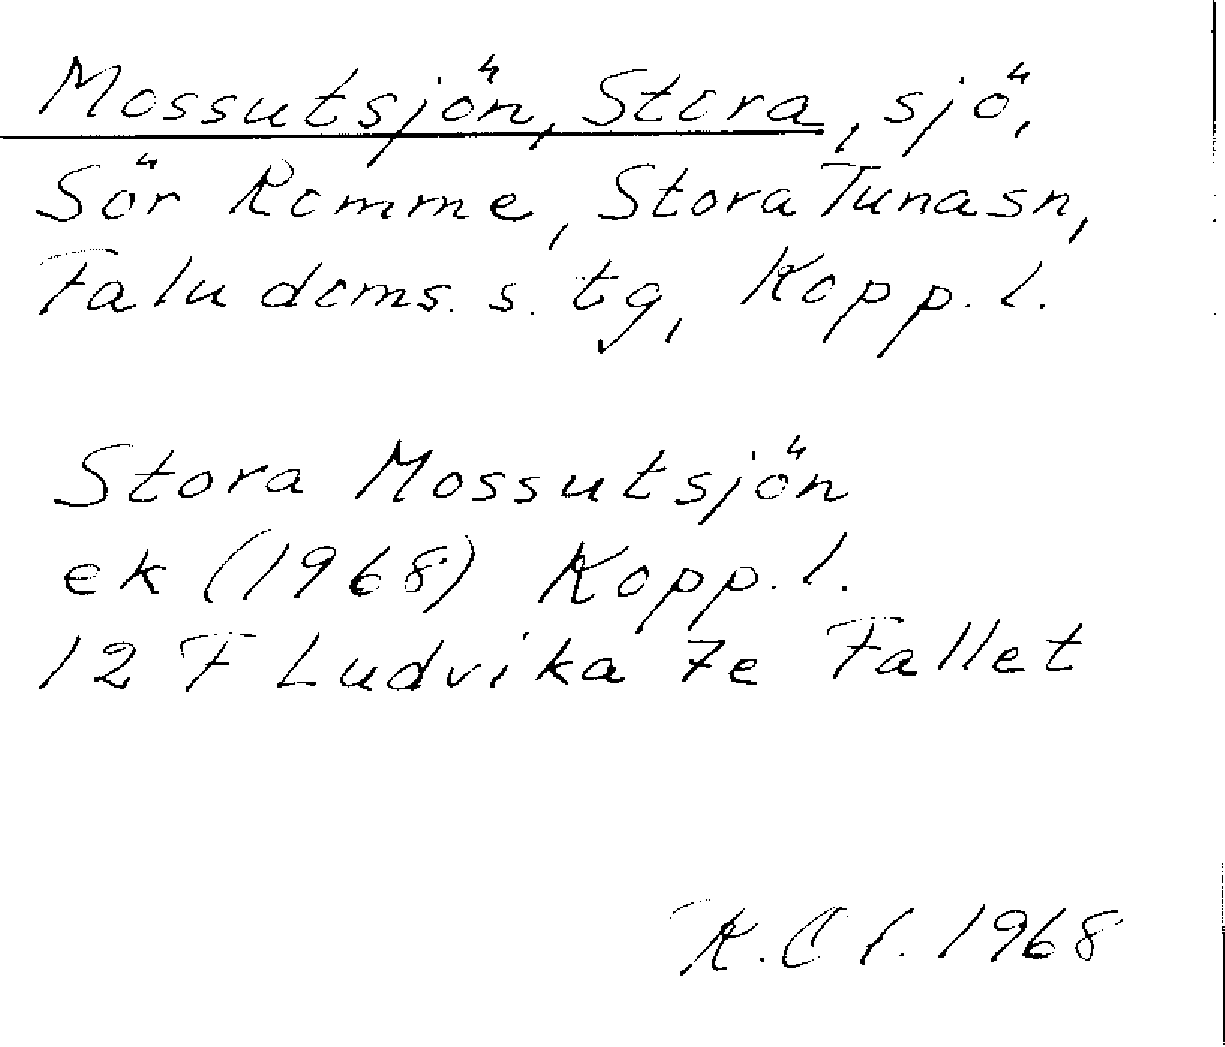 Mossutsjön, Stora, sjö,
Sör Romme, Stora Tuna sn,
Falu doms. s. tg, Kopp. l.
Stora Mossutsjön
ek (1968) Kopp. l.
12 F Ludvika 7e Fallet
1968